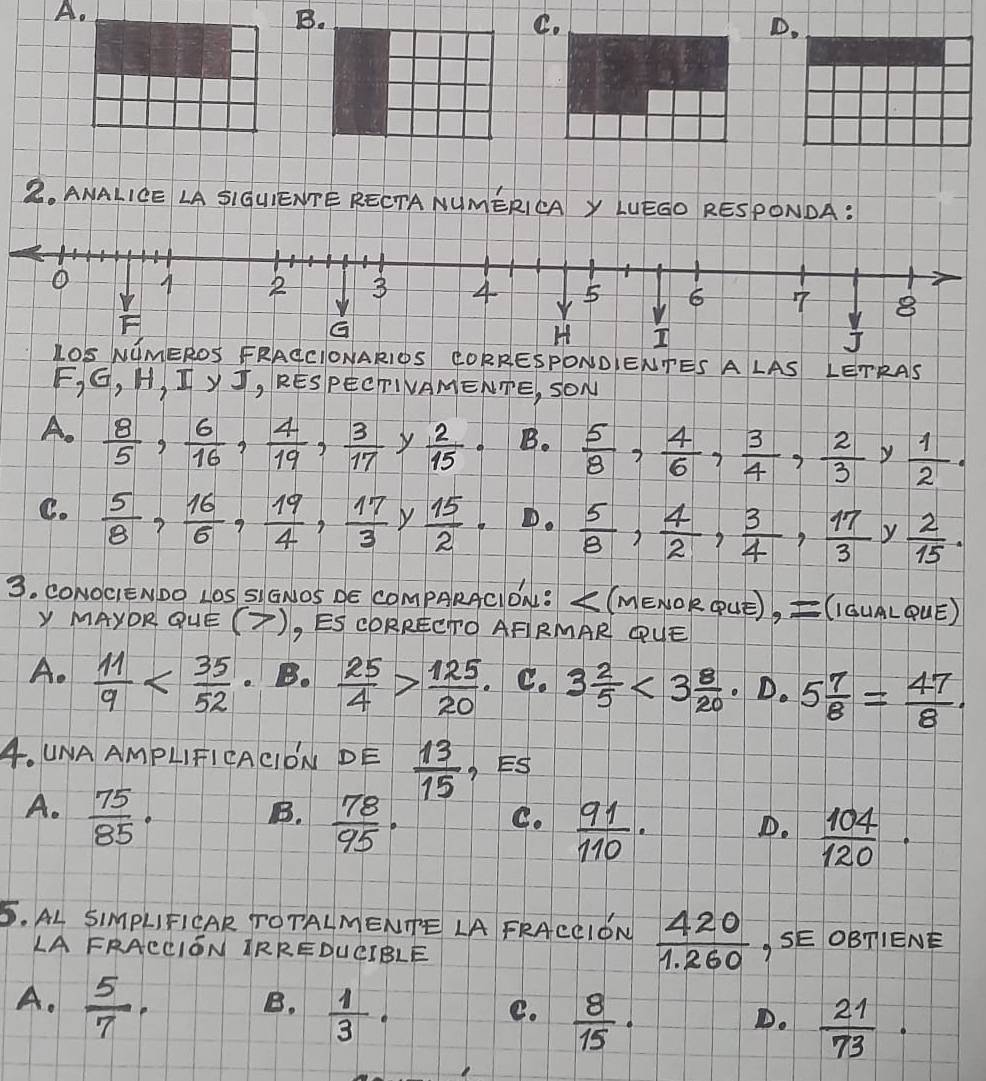 A. B. C. D.
2. ANALICE LA SIGUIENTE RECTA NUMÉRICA Y LUEGO RESPONDA:
0 1 2 3 4 5 6 7 8
F G H I J
LOS NÚMEROS FRACCIONARIOS CORRESPONDIENTES A LAS LETRAS
F, G, H, I Y J, RESPECTIVAMENTE, SON
A. 8/5, 6/16, 4/19, 3/17 y 2/15. B. 5/8, 4/6, 3/4, 2/3 y 1/2.
C. 5/8, 16/6, 19/4, 17/3 y 15/2. D. 5/8, 4/2, 3/4, 17/3 y 2/15.
3. CONOCIENDO LOS SIGNOS DE COMPARACIÓN: < (MENOR QUE), = (IGUAL QUE)
Y MAYOR QUE (>), ES CORRECTO AFIRMAR QUE
A. 11/9 < 35/52. B. 25/4 > 125/20. C. 3 2/5 < 3 8/20. D. 5 7/8 = 47/8.
4. UNA AMPLIFICACIÓN DE 13/15, ES
A. 75/85. B. 78/95. C. 91/110. D. 104/120.
5. AL SIMPLIFICAR TOTALMENTE LA FRACCIÓN 420/1.260, SE OBTIENE
LA FRACCIÓN IRREDUCIBLE
A. 5/7. B. 1/3. C. 8/15. D. 21/73.